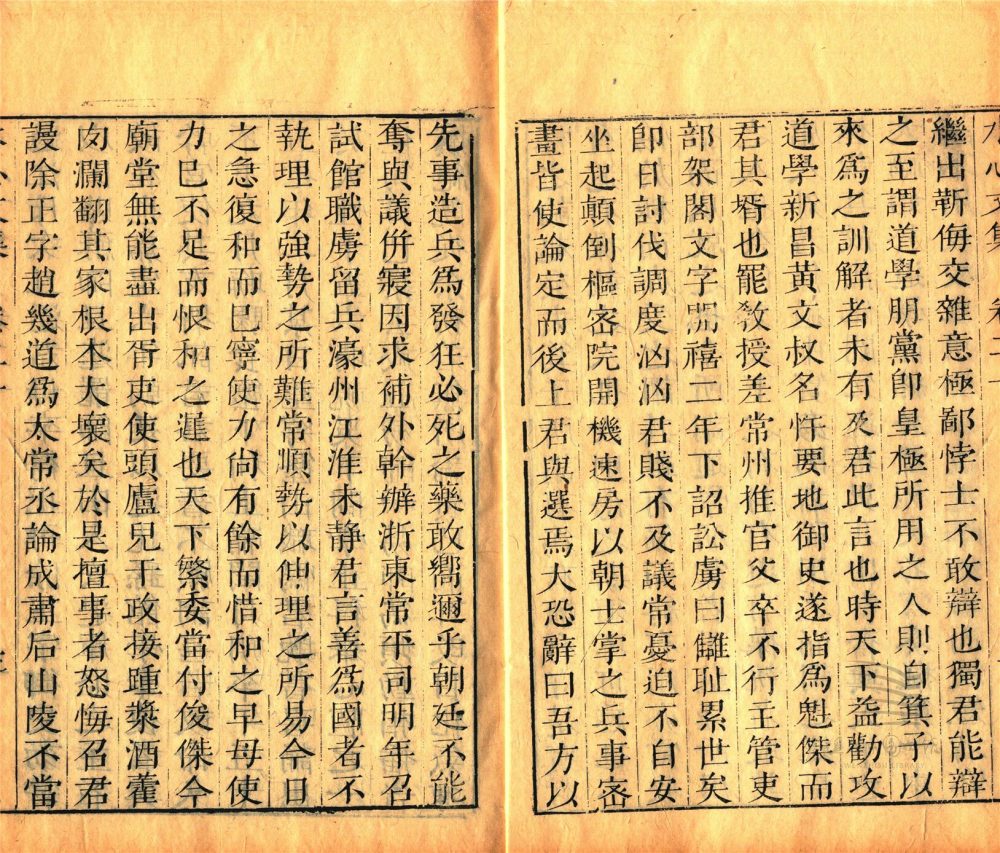 繼出靳侮交雜意極鄙悖士不敢辯也獨君能辯
之至謂道學朋黨卽皇極所用之人則自箕子以
來爲之訓解者未有及君此言也時天下益勸攻
道學新昌黃文叔名忤要地御史遂指爲魁傑而
君其壻也罷敎授差常州推官父卒不行主管吏
部架閣文字開禧二年下詔訟虜曰讎耻累世矣
卽日討伐調度汹汹君賤不及議常憂迫不自安
坐起顛倒樞密院開機速房以朝士掌之兵事密
畫皆使論定而後上君與選焉大恐辭曰吾方以
先事造兵爲發狂必死之藥敢嚮邇乎朝廷不能
奪與議併寢因求補外幹辦浙東常平司明年召
試館職虜留兵濠州江淮未靜君言善爲國者不
執理以強勢之所難常順勢以伸理之所易今日
之急復和而已寧使力尙有餘而惜和之早毋使
力已不足而恨和之遲也天下繁委當付俊傑今
廟堂無能盡出胥吏使頭廬兒干政接踵漿酒藿
肉瀾翻其家根本大壞矣於是檀事者怒悔召君
謾除正字趙幾道爲太常丞論成肅后山陵不當